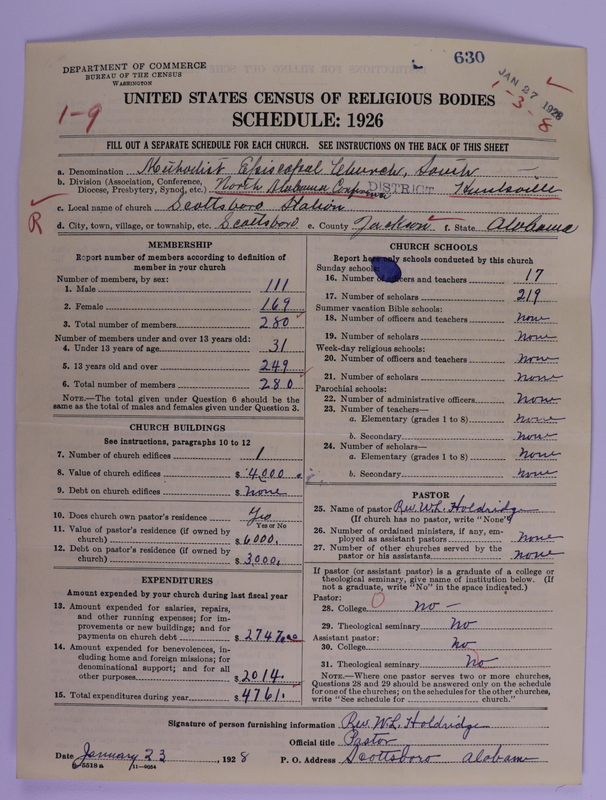 630
JAN 27 1928
1-9
1-3-8
DEPARTMENT OF COMMERCE
BUREAU OF THE CENSUS
WASHINGTON
UNITED STATES CENSUS OF RELIGIOUS BODIES
SCHEDULE: 1926
FILL OUT A SEPARATE SCHEDULE FOR EACH CHURCH. SEE INSTRUCTIONS ON THE BACK OF THIS SHEET
a. Denomination Methodist Episcopal Church, South
b. Division (Association, Conference, Diocese, Presbytery, Synod, etc.) North Alabama Conference DISTRICT Huntsville
R
c. Local name of church Scottsboro Station
d. City, town, village, or township, etc. Scottsboro e. County Jackson f. State Alabama
MEMBERSHIP
Report number of members according to definition of
member in your church
Number of members, by sex:
1. Male 111
2. Female 169
3. Total number of members 280
Number of members under and over 13 years old:
4. Under 13 years of age 31
5. 13 years old and over 249
6. Total number of members 280
NOTE.—The total given under Question 6 should be the
same as the total of males and females given under Question 3.
CHURCH BUILDINGS
See instructions, paragraphs 10 to 12
7. Number of church edifices 1
8. Value of church edifices $ 4,000
9. Debt on church edifices $ none
10. Does church own pastor's residence Yes
Yes or No
11. Value of pastor's residence (if owned by
church) $ 6000.
12. Debt on pastor's residence (if owned by
church) $ 3,000.
EXPENDITURES
Amount expended by your church during last fiscal year
13. Amount expended for salaries, repairs,
and other running expenses; for im-
provements or new buildings; and for
payments on church debt $ 2747.00
14. Amount expended for benevolences, in-
cluding home and foreign missions; for
denominational support; and for all
other purposes $ 2014.
15. Total expenditures during year $ 4761.
CHURCH SCHOOLS
Report here only schools conducted by this church
Sunday schools:
16. Number of officers and teachers 17
17. Number of scholars 219
Summer vacation Bible schools:
18. Number of officers and teachers none
19. Number of scholars none
Week-day religious schools:
20. Number of officers and teachers none
21. Number of scholars none
Parochial schools:
22. Number of administrative officers none
23. Number of teachers—
a. Elementary (grades 1 to 8) none
b. Secondary none
24. Number of scholars—
a. Elementary (grades 1 to 8) none
b. Secondary none
PASTOR
25. Name of pastor Rev. W. L. Holdridge
(If church has no pastor, write "None")
26. Number of ordained ministers, if any, em-
ployed as assistant pastors none
27. Number of other churches served by the
pastor or his assistants none
If pastor (or assistant pastor) is a graduate of a college or
theological seminary, give name of institution below. (If
not a graduate, write "No" in the space indicated.)
Pastor:
28. College no -
29. Theological seminary No
Assistant pastor:
30. College no
31. Theological seminary No
NOTE.—Where one pastor serves two or more churches,
Questions 28 and 29 should be answered only on the schedule
for one of the churches; on the schedules for the other churches,
write "See schedule for church."
Signature of person furnishing information Rev. W. L. Holdridge
Official title Pastor
Date January 23, 1928 P. O. Address Scottsboro Alabama
6-5518 a 11-9034